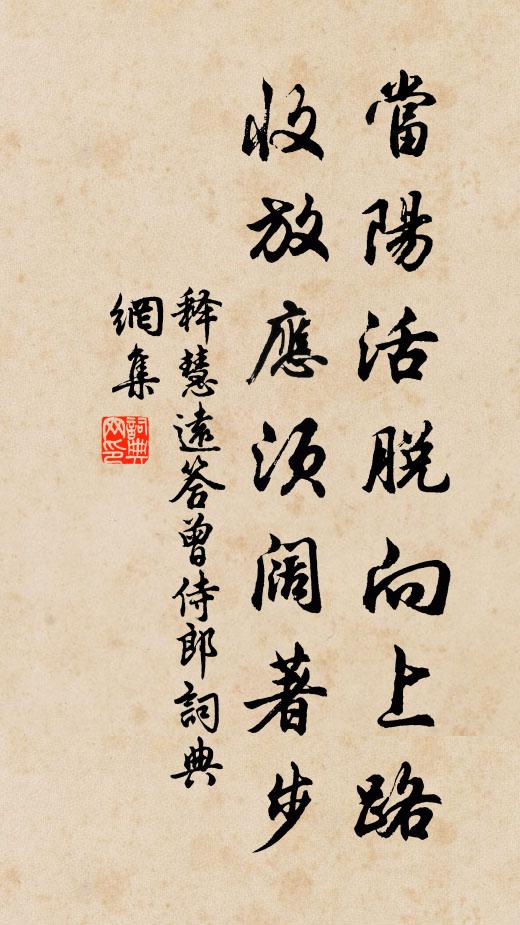 當陽活脱向上路
收放應須闊著步
释慧遠答曾侍郎詞典
網集
詞典网印